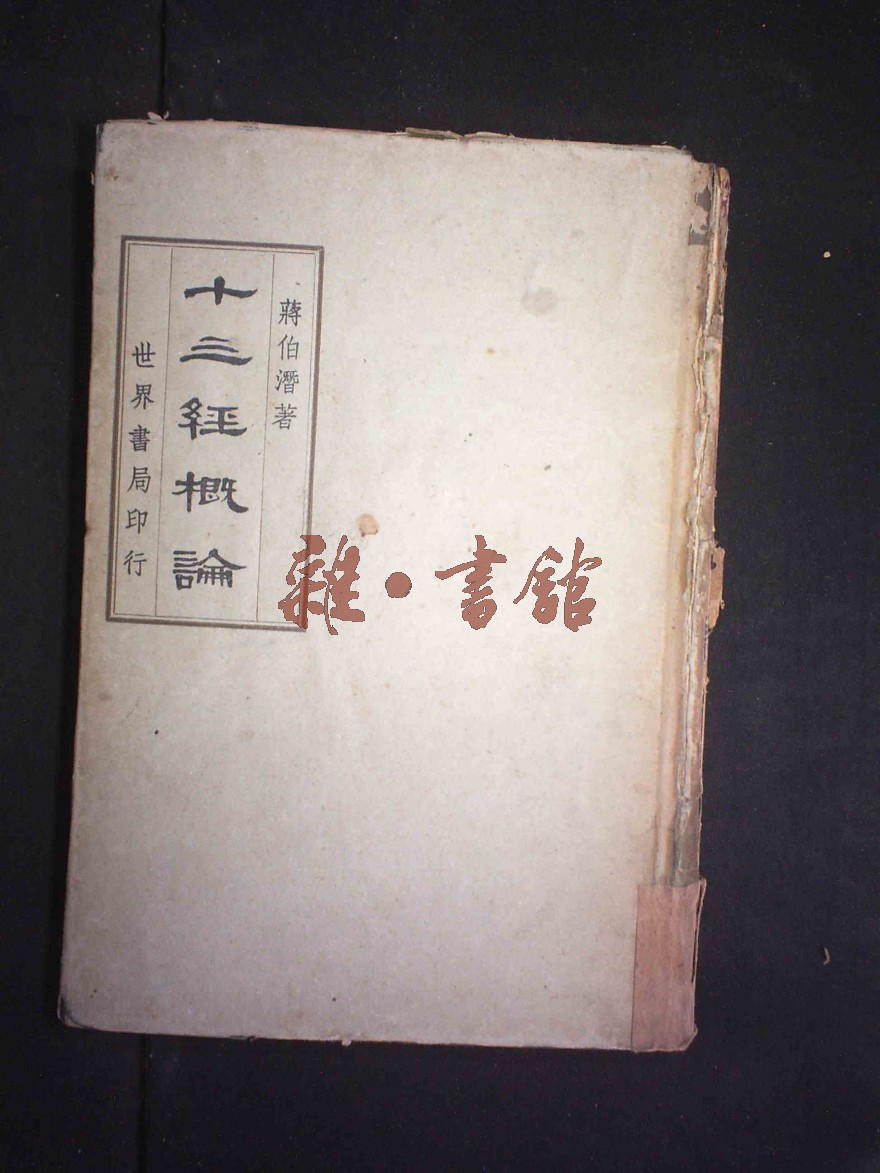 蔣伯潛著
十三經概論
世界書局印行
雜·書館